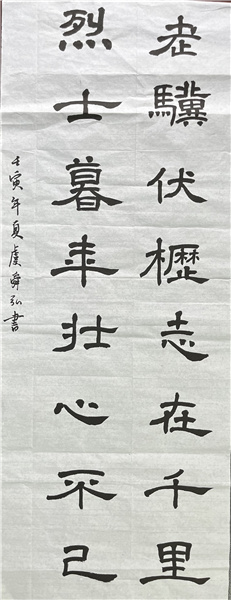 老驥伏櫪志在千里
烈士暮年壯心不已
壬寅年夏虞舜弘書